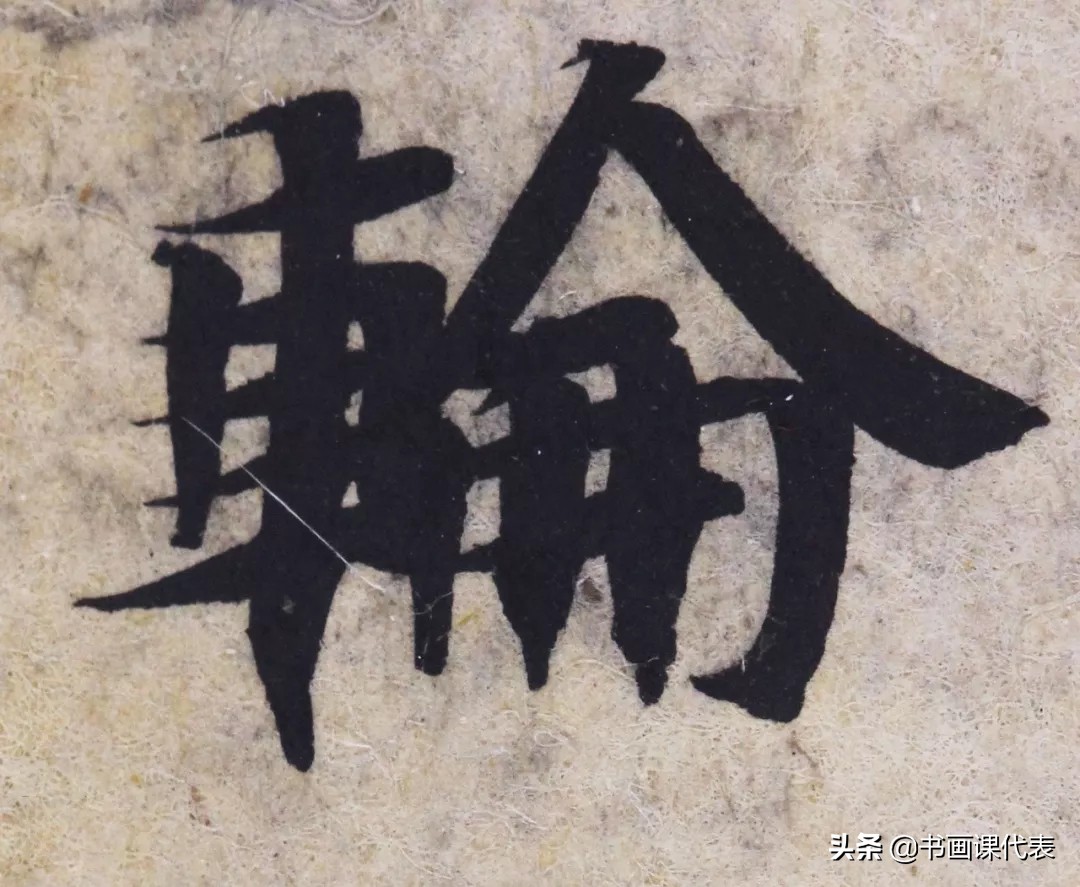 輪
头条 @书画课代表